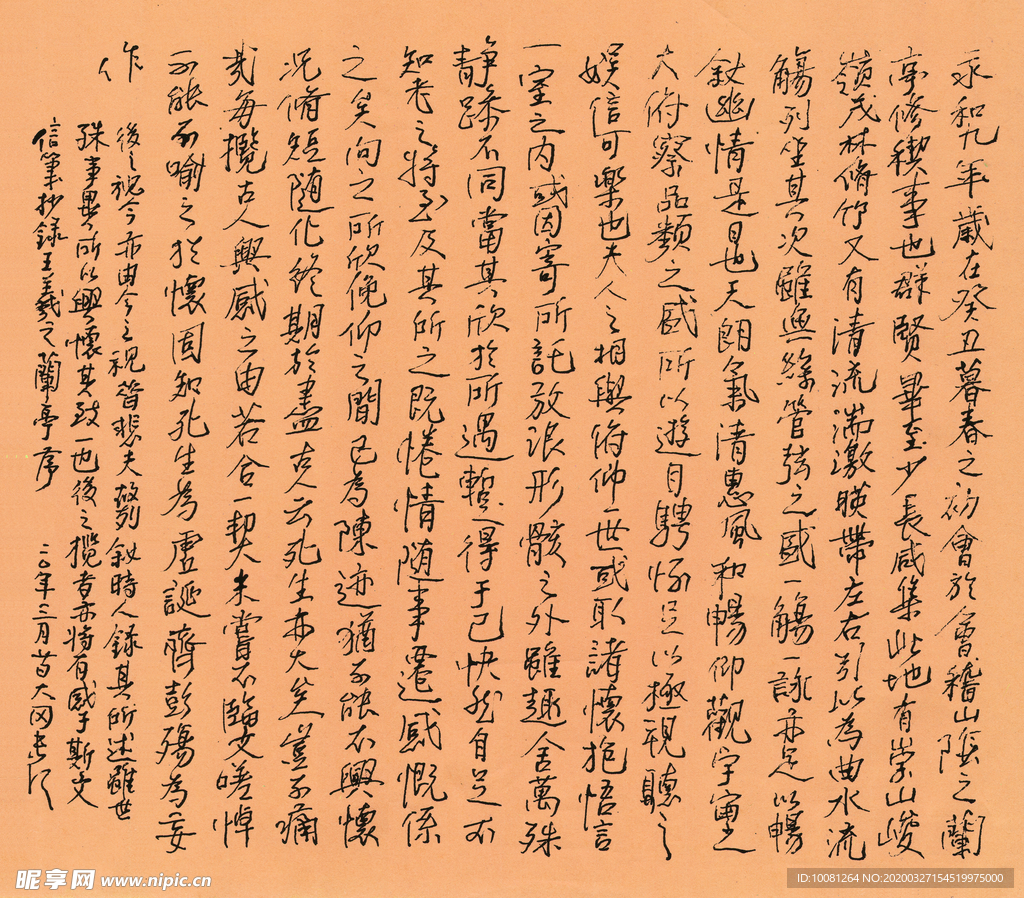 永和九年歲在癸丑暮春之初會於會稽山陰之蘭
亭修禊事也群賢畢至少長咸集此地有崇山峻
嶺茂林脩竹又有清流湍激暎帶左右引以為曲水流
觴列坐其次雖無絲管弦之盛一觴一詠亦足以暢
敘幽情是日也天朗氣清惠風和暢仰觀宇宙之
大俯察品類之盛所以遊目騁懷足以極視聽之
娛信可樂也夫人之相與俯仰一世或取諸懷抱悟言
一室之內或因寄所託放浪形骸之外雖趣舍萬殊
靜躁不同當其欣於所遇暫得于己快然自足不
知老之將至及其所之既惓情隨事遷感慨係
之矣向之所欣俛仰之間已為陳迹猶不能不興懷
況脩短隨化終期於盡古人云死生亦大矣豈不痛
哉每攬古人興感之由若合一契未嘗不臨文嗟悼
不能不喻之於懷固知死生為虛誕齊彭殤為妄
作
後之視今亦由今之視昔悲夫故列敘時人錄其所述雖世
殊事異所以興懷其致一也後之攬者亦將有感于斯文
信筆抄錄王羲之蘭亭序 二〇年三月
昵享网 www.nipic.cn
ID:10081264 NO:20200327154519975000